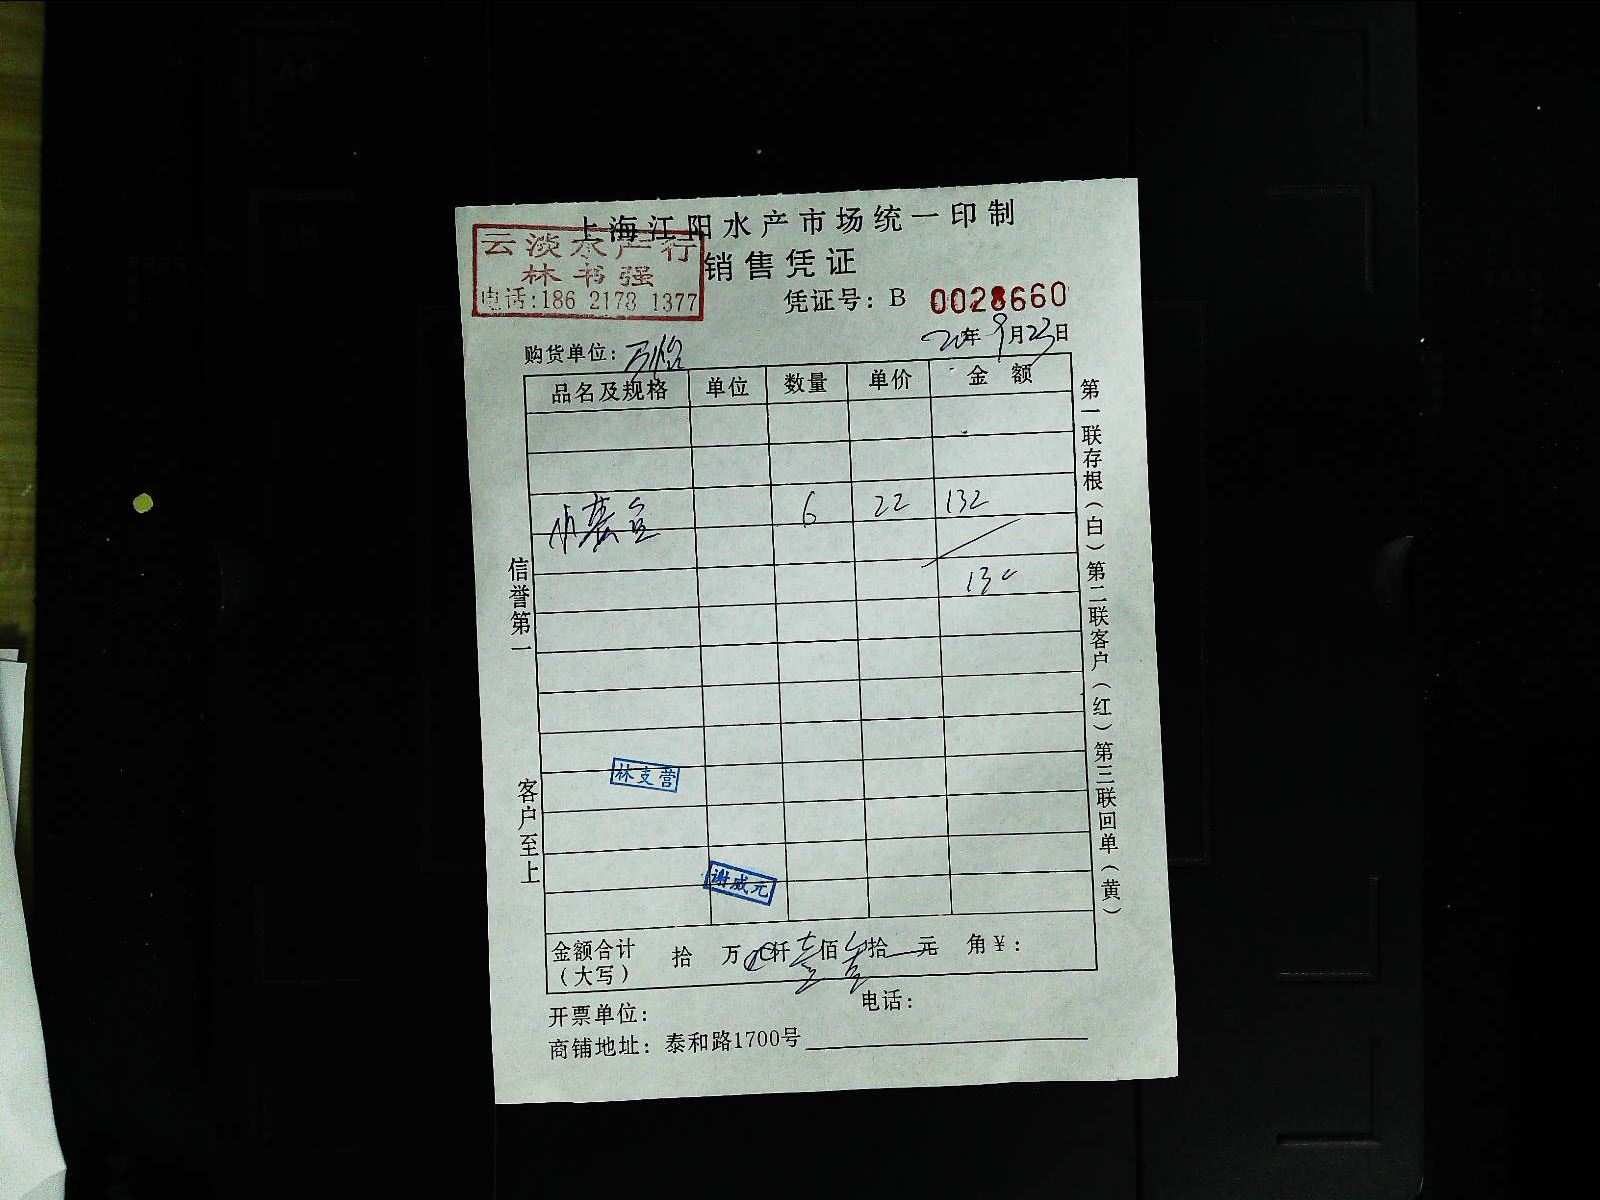 上海江阳水产市场统一印制
云淡水产行
林书强
电话:186 2178 1377
销售凭证
凭证号：B 0028660
20年9月23日
购货单位：万怡
品名及规格 单位 数量 单价 金额
6 22 132
130
林支营
谢威元
金额合计（大写） 拾 万 仟 壹佰 拾 元 角 ¥：
开票单位： 电话：
商铺地址：泰和路1700号
信誉第一
客户至上
第一联存根（白）第二联客户（红）第三联回单（黄）